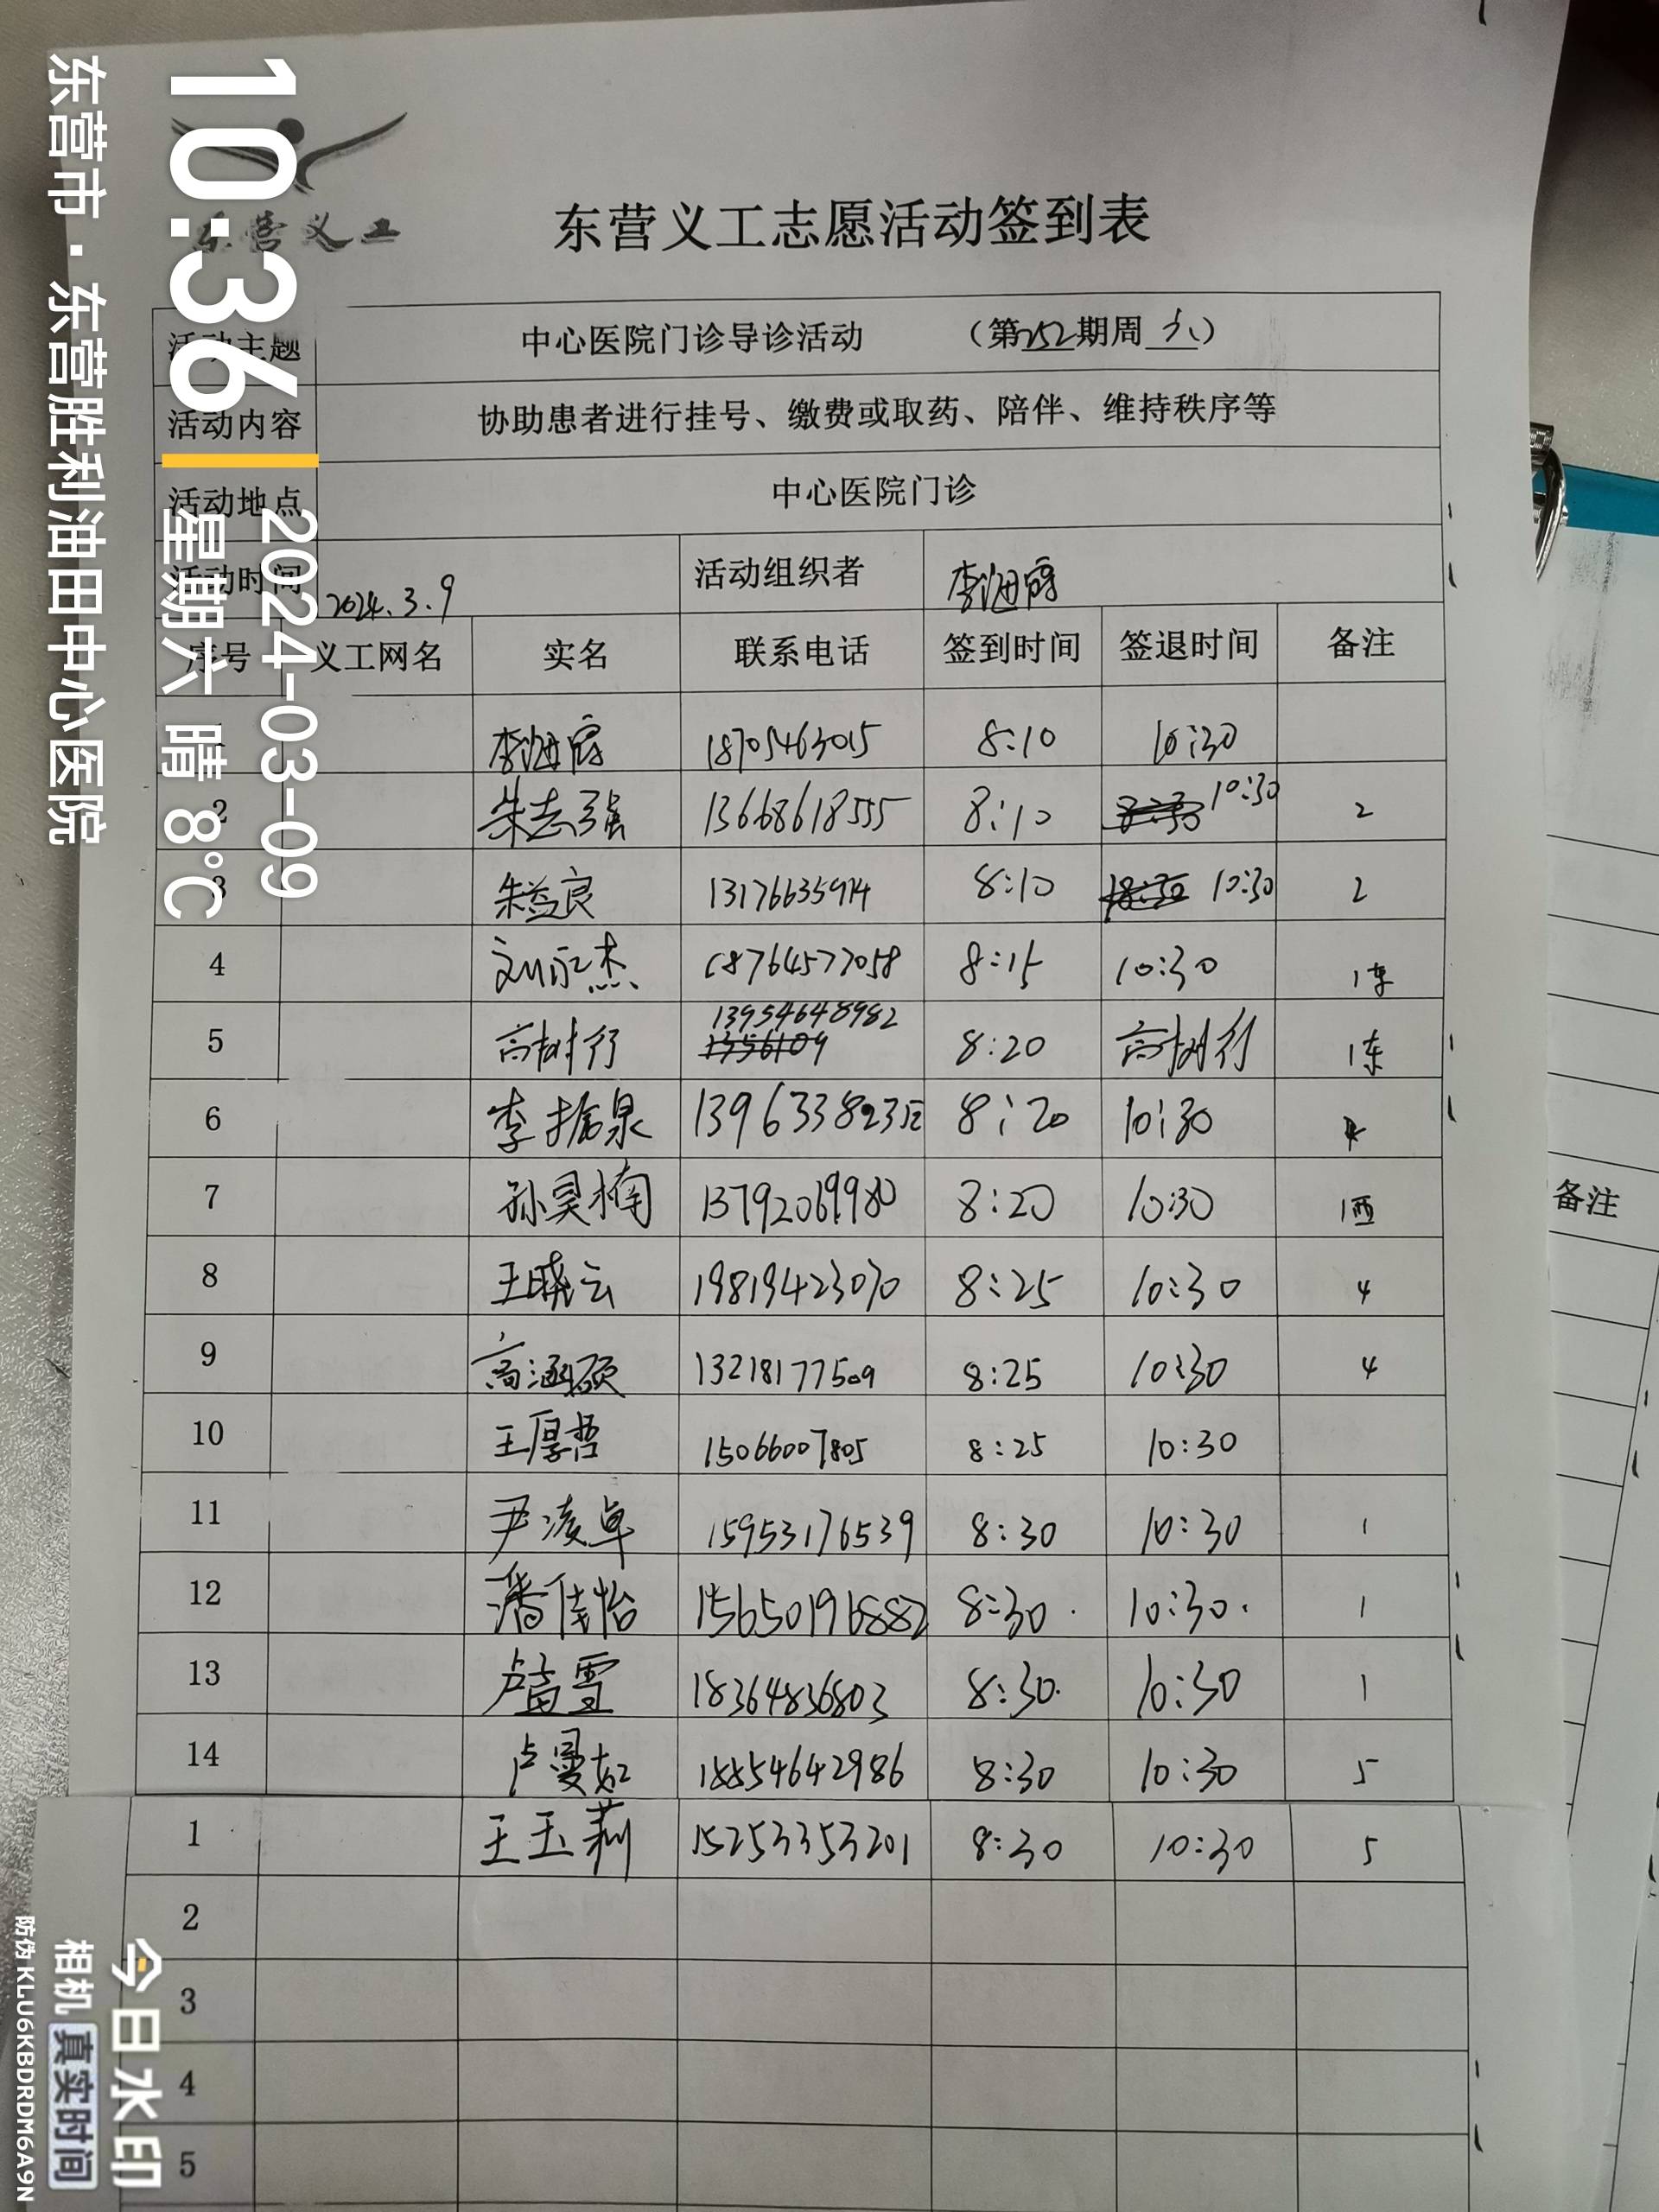 10:36
2024-03-09
星期六 晴 8°C
东营市·东营胜利油田中心医院
东营义工
东营义工志愿活动签到表
活动主题 中心医院门诊导诊活动 （第252期周六）
活动内容 协助患者进行挂号、缴费或取药、陪伴、维持秩序等
活动地点 中心医院门诊
活动时间 2024.3.9 活动组织者 李海
序号 义工网名 实名 联系电话 签到时间 签退时间 备注
1 李海 18705463015 8:10 10:30
2 朱志强 13668618555 8:10 10:30 2
3 朱益良 13176635914 8:10 10:30 2
4 刘永杰 18764577058 8:15 10:30 1东
5 高树行 13954648982 8:20 高树行 1东
6 李振泉 8:20 10:30
7 孙昊楠 13792069980 8:20 10:30 1西
8 王晓云 19819423070 8:25 10:30 4
9 高涵硕 13218177509 8:25 10:30 4
10 王厚哲 15066007805 8:25 10:30
11 尹凌卓 15953176539 8:30 10:30 1
12 潘倩怡 156501968882 8:30. 10:30. 1
13 卢雪 18364836803 8:30. 10:30 1
14 卢曼如 18854642986 8:30 10:30 5
1 王玉莉 15253353201 8:30 10:30 5
2
3
4
5
备注
今日水印
相机 真实时间
防伪 KLU6KBDRDM6A9N